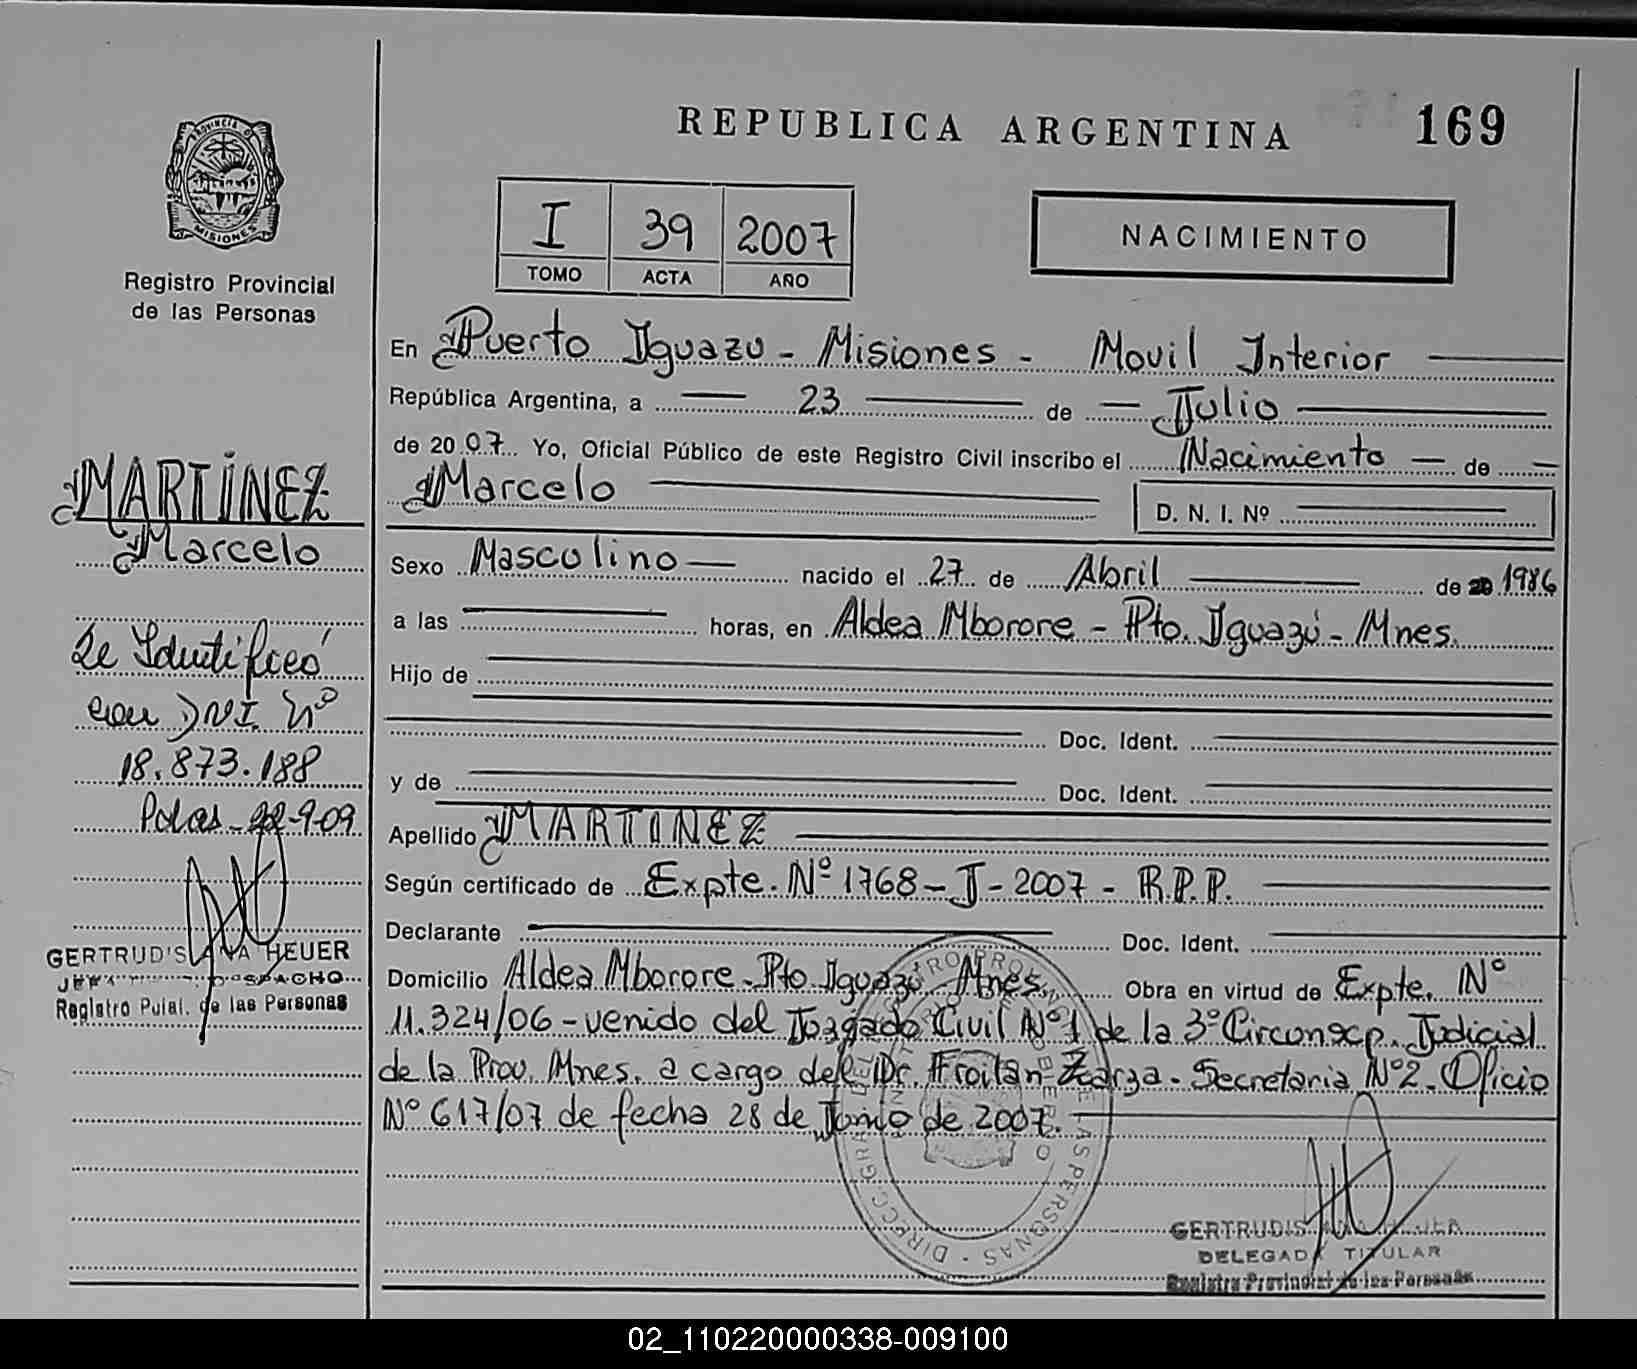 REPUBLICA ARGENTINA 169
PROVINCIA D
MISIONES
Registro Provincial
de las Personas
I 39 2007
TOMO ACTA AÑO
NACIMIENTO
En Puerto Iguazu - Misiones - Movil Interior
República Argentina, a 23 de Julio
de 2007 Yo, Oficial Público de este Registro Civil inscribo el Nacimiento de
Marcelo D. N. I. Nº
Sexo Masculino nacido el 27 de Abril de 20 1986
a las horas, en Aldea Mborore - Pto. Iguazú - Mnes.
Hijo de
Doc. Ident.
y de Doc. Ident.
Apellido MARTINEZ
Según certificado de Expte. Nº 1768 - J - 2007 - R.P.P.
Declarante Doc. Ident.
Domicilio Aldea Mborore - Pto Iguazú - Mnes. Obra en virtud de Expte. Nº
11.324/06 - venido del Juzgado Civil Nº 1 de la 3º Circonscp. Judicial
de la Prov. Mnes. a cargo del Dr. Froilan Zarza - Secretaria Nº 2. Oficio
Nº 617/07 de fecha 28 de Junio de 2007.
GERTRUDIS ANA HEUER
DELEGADA TITULAR
Registro Provincial de las Personas
MARTÍNEZ
Marcelo
Se Identificó
con DNI. Nº
18.873.188
Pdas - 22-9-09
GERTRUDIS ANA HEUER
DESPACHO
Registro Pcial. de las Personas
DIRECC. GRAL DEL REGISTRO PROV. DE LAS PERSONAS
02_110220000338-009100